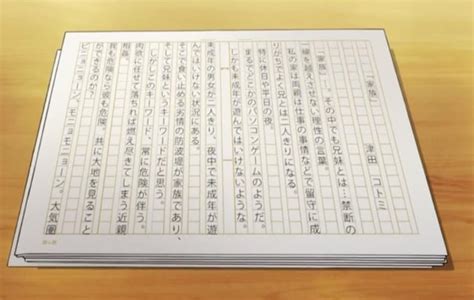 「家族」
津田 コトミ
「家族」…。その中でも兄妹とは…禁断の
線を越えさせない理性の言葉。
私の家は両親は仕事の事情などで留守に成
りがちでよく兄とは二人きりになる。
特に休日や平日の夜。
まるでどこかのパソコンゲームのようだ。
しかも未成年が遊んではいけないような。
未成年の男女が二人きり、夜中で未成年が遊
んではいけない状況にある。
そこで食い止める劣情の防波堤が家族であり、
そして兄妹というキーワードだと思う。
しかしこのキーワード、常に危険が伴う。
肉欲に任せて落ちれば燃え尽きてしまう近親
相姦。
我も危険なら彼も危険。共に大地を見ること
ができるのか?
ニョーン、モニョモニョーン。大気圏